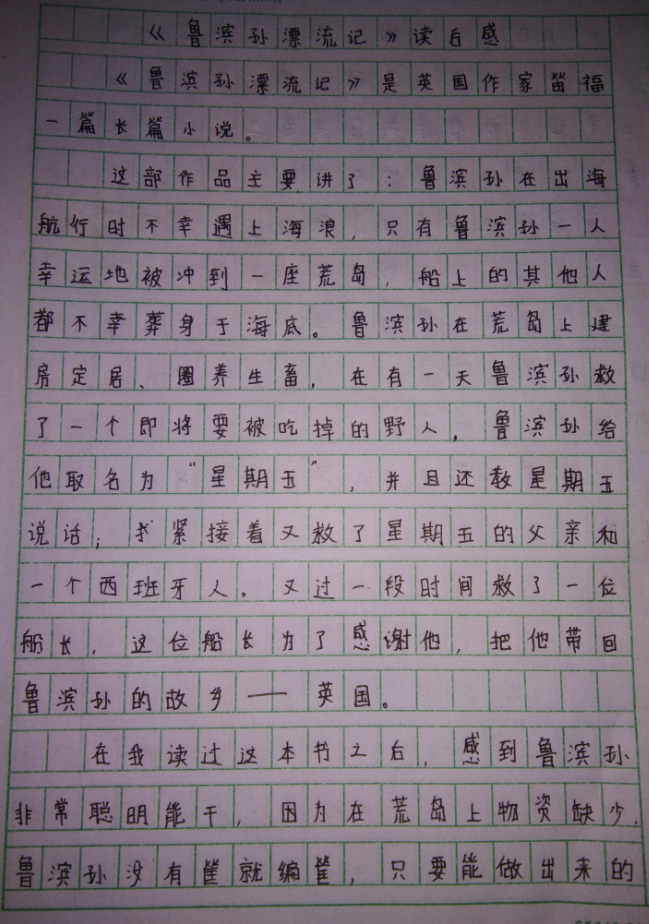 《鲁滨孙漂流记》读后感
《鲁滨孙漂流记》是英国作家笛福
一篇长篇小说。
这部作品主要讲了：鲁滨孙在出海
航行时不幸遇上海浪，只有鲁滨孙一人
幸运地被冲到一座荒岛，船上的其他人
都不幸葬身于海底。鲁滨孙在荒岛上建
房定居、圈养生畜，在有一天鲁滨孙救
了一个即将要被吃掉的野人，鲁滨孙给
他取名为“星期五”，并且还教星期五
说话；紧接着又救了星期五的父亲和
一个西班牙人。又过一段时间救了一位
船长，这位船长为了感谢他，把他带回
鲁滨孙的故乡——英国。
在我读过这本书之后，感到鲁滨孙
非常聪明能干，因为在荒岛上物资缺少，
鲁滨孙没有筐就编筐，只要能做出来的